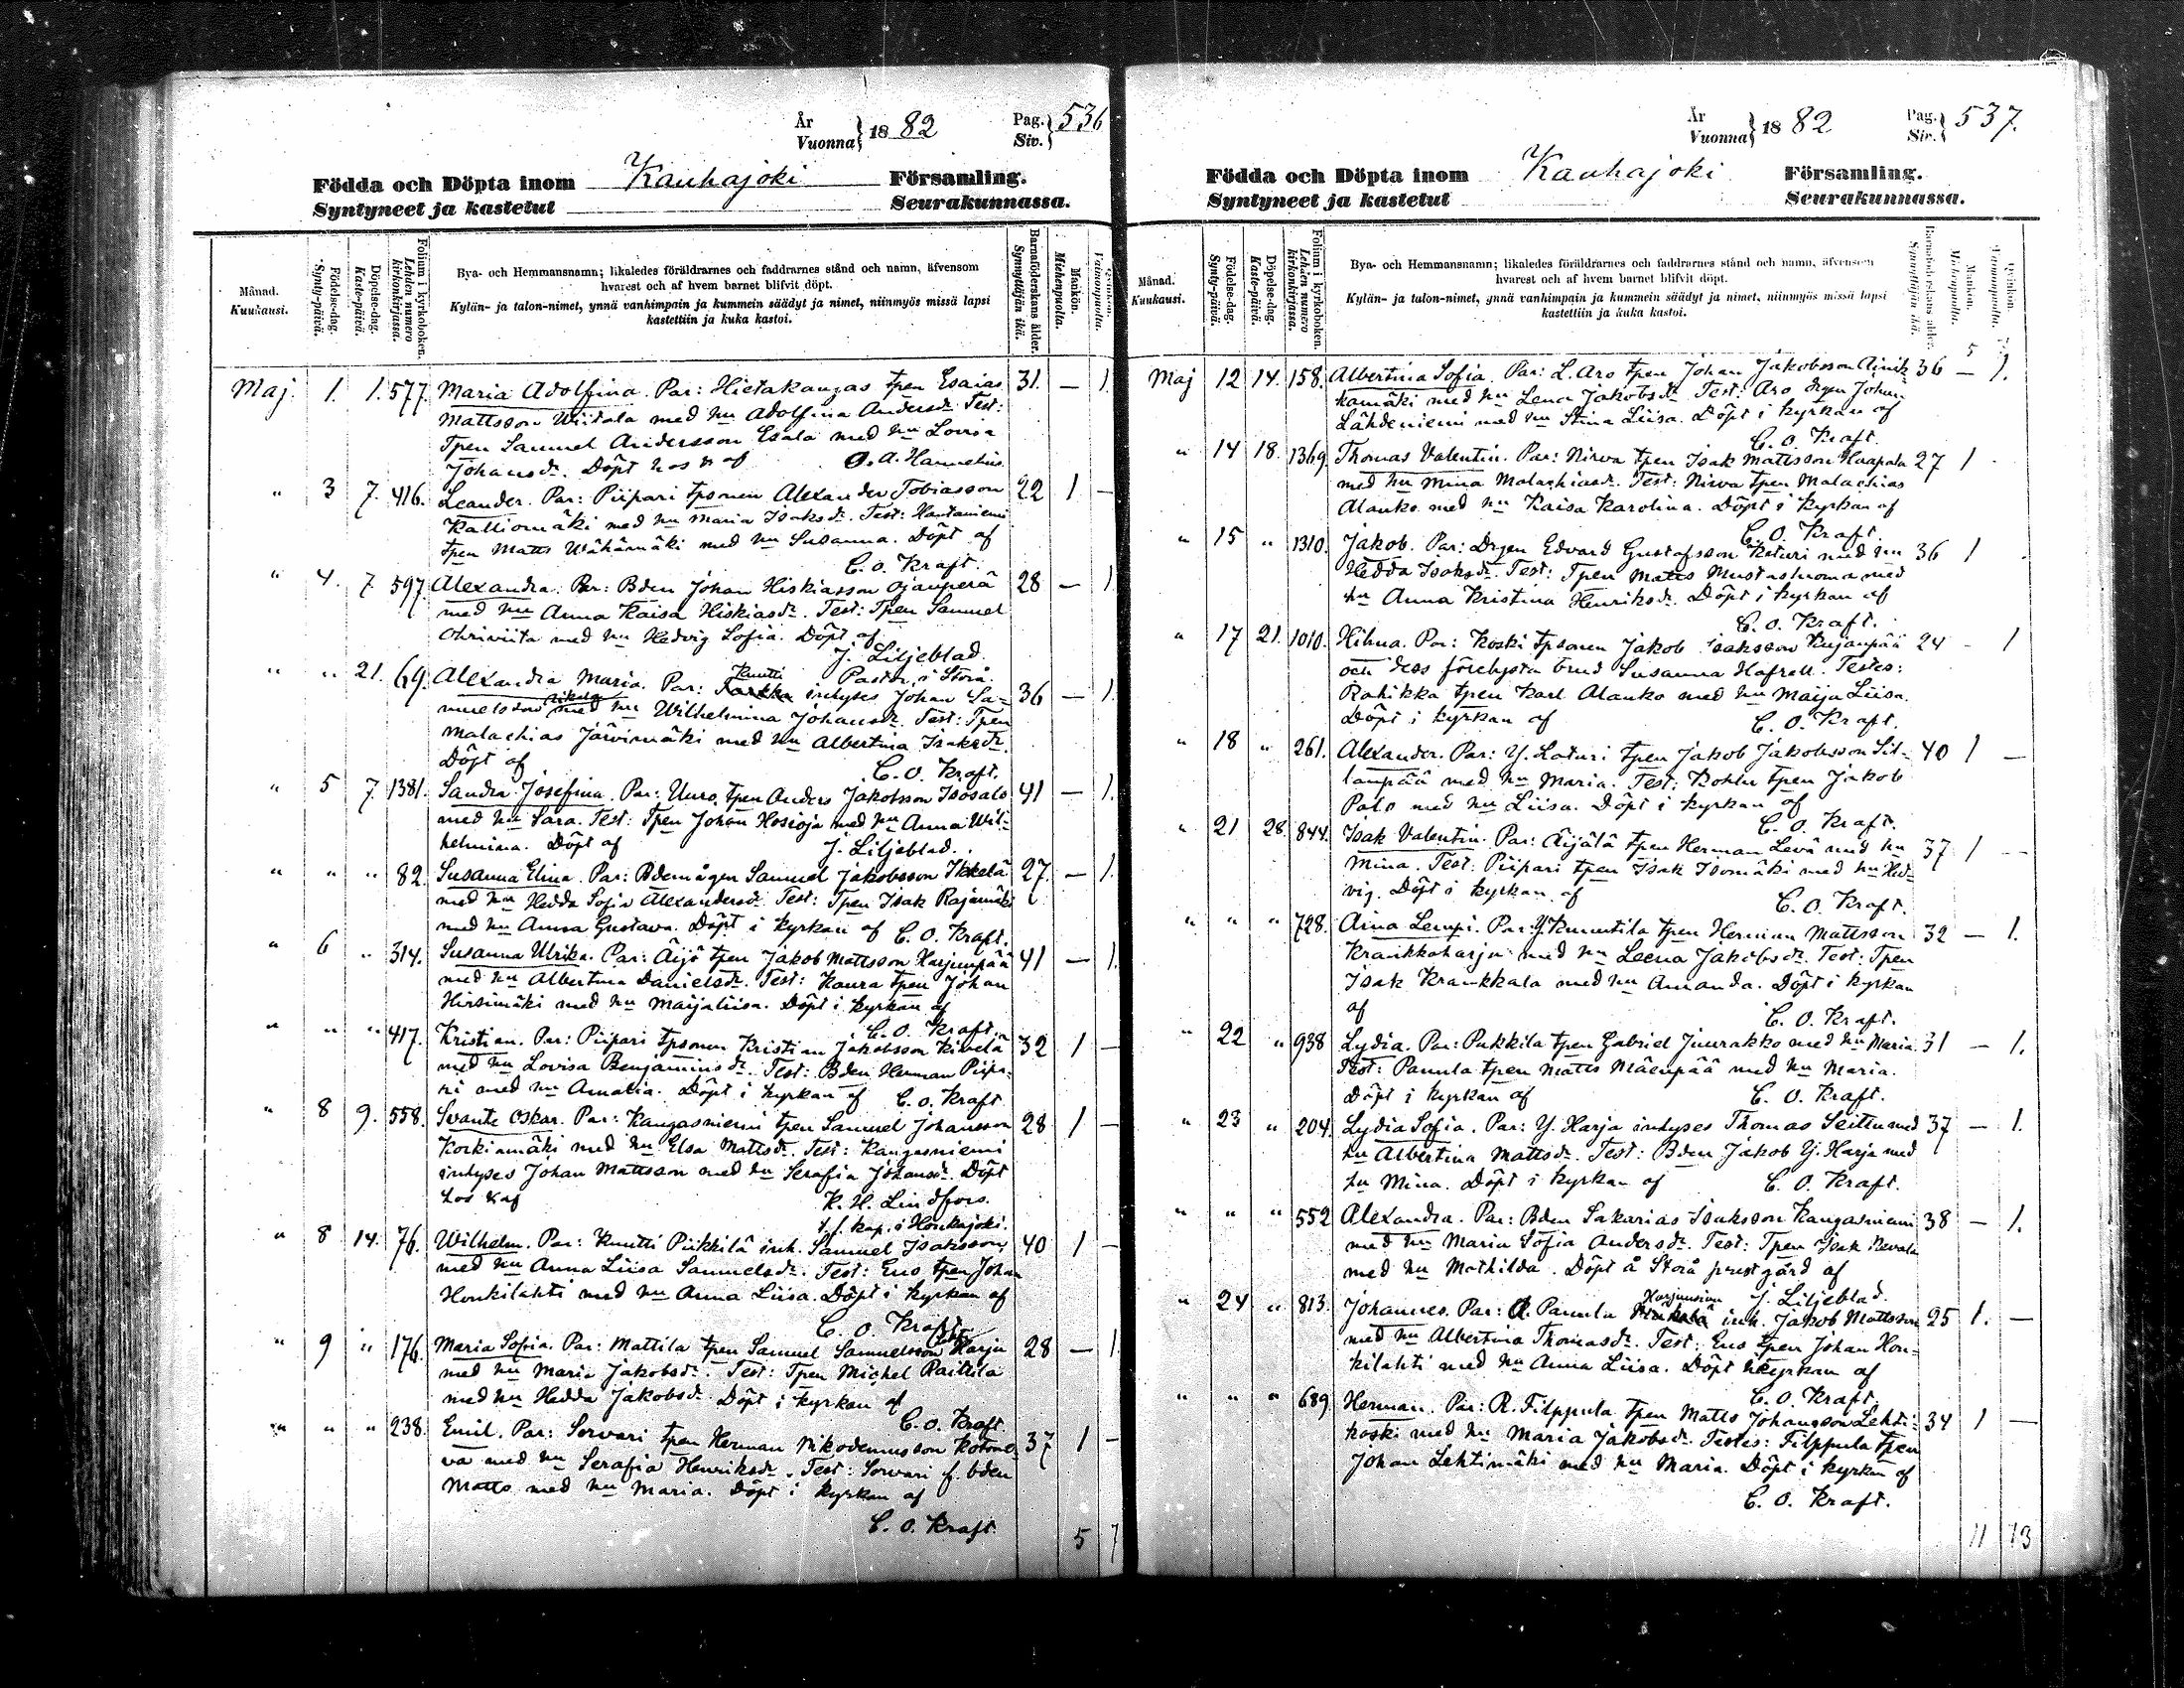 År
Vuonna } 18 82 Pag. Siv. } 536
Födda och Döpta inom Kauhajoki Församling.
Syntyneet ja kastetut Seurakunnassa.
Månad. Kuukausi.
Födelse-dag. Synty-päivä.
Döpelse-dag. Kaste-päivä.
Folium i kyrkoboken. Lehden numero kirkonkirjassa.
Bya- och Hemmansnamn; likaledes föräldrarnes och faddrarnes stånd och namn, äfvensom
hvarest och af hvem barnet blifvit döpt.
Kylän- ja talon-nimet, ynnä vanhimpain ja kummein säädyt ja nimet, niinmyös missä lapsi
kastettiin ja kuka kastoi.
Barnaföderskans ålder. Synnyttäjän ikä.
Mankön. Miehenpuolta.
Qvinkön. Vaimonpuolta.
Maj 1. 1. 577. Maria Adolfina. Par: Hietakangas tpen Esaias 31. — 1.
Mattsson Wiitala med hu Adolfina Andersdr. Test:
Tpen Samuel Andersson Esala med hu Lovisa
Johansdr. Döpt hos & af O. A. Hannelius.
" 3 7. 416. Leander. Par: Piipari tpsonen Alexander Tobiasson 22 1 —
Kalliomäki med hu Maria Isaksdr. Test: Hautaniemi
tpen Matts Wähämäki med hu Susanna. Döpt af
C. O. Kraft.
" 4. 7 597 Alexandra. Par: Bden Johan Hiskiasson Ojanperä 28 — 1
med hu Anna Kaisa Hiskiasdr. Test: Tpen Samuel
Ohriviita med hu Hedvig Sofia. Döpt af
J. Liljeblad.
Past. i Storå.
" " 21. 69. Alexandra Maria. Par: Knutti inhyses Johan Sa- 36 — 1.
muelsson med hu Wilhelmina Johansdr. Test: Tpen
Malachias Järvimäki med hu Albertina Isaksdr.
Döpt af C. O. Kraft.
" 5 7. 1381. Sandra Josefina. Par: Uuro tpen Anders Jakobsson Isosalo 41 — 1.
med hu Sara. Test: Tpen Johan Hosioja med hu Anna Wil-
helmina. Döpt af J. Liljeblad.
" " " 82. Susanna Elina. Par: Bdemågen Samuel Jakobsson Ikkelä 27. — 1.
med hu Hedda Sofia Alexandersdr. Test: Tpen Isak Rajamäki
med hu Anna Gustava. Döpt i kyrkan af C. O. Kraft.
" 6 " 314. Susanna Ulrika. Par: Äijö tpen Jakob Mattsson Harjunpää 41 — 1.
med hu Albertina Danielsdr. Test: Koura tpen Johan
Hirsimäki med hu Maijaliisa. Döpt i kyrkan af
C. O. Kraft.
" " " 417. Kristian. Par: Piipari tpsonen Kristian Jakobsson Kivelä 32 1 —
med hu Lovisa Benjaminsdr. Test: Bden Herman Piipa-
ri med hu Amalia. Döpt i kyrkan af C. O. Kraft
" 8 9. 558. Svante Oskar. Par: Kangasniemi tpen Samuel Johansson 28 1 —
Korkiamäki med hu Elsa Mattsdr. Test: Kangasniemi
inhyses Johan Mattsson med hu Serafia Johansdr. Döpt
hos & af K. H. Lindfors.
t. f. kap. i Honkajoki.
" 8 14. 76. Wilhelm. Par: Knutti Piikkilä inh. Samuel Isaksson 40 1 —
med hu Anna Liisa Samuelsdr. Test: Ens tpen Johan
Honkilahti med hu Anna Liisa. Döpt i kyrkan af
C. O. Kraft.
" 9 " 176. Maria Sofia. Par: Mattila tpen Samuel Samuelsson Harju 28 — 1
med hu Maria Jakobsdr. Test: Tpen Michel Raittila
med hu Hedda Jakobsdr. Döpt i kyrkan af
C. O. Kraft.
" " " 238. Emil. Par: Sorvari tpen Herman Nikodemusson Kotone- 37 1 —
va med hu Serafia Henriksdr. Test: Sorvari f. bden
Matts med hu Maria. Döpt i kyrkan af
C. O. Kraft.
5 7
År
Vuonna } 18 82 Pag. Siv. } 537.
Födda och Döpta inom Kauhajoki Församling.
Syntyneet ja kastetut Seurakunnassa.
Månad. Kuukausi.
Födelse-dag. Synty-päivä.
Döpelse-dag. Kaste-päivä.
Folium i kyrkoboken. Lehden numero kirkonkirjassa.
Bya- och Hemmansnamn; likaledes föräldrarnes och faddrarnes stånd och namn, äfvensom
hvarest och af hvem barnet blifvit döpt.
Kylän- ja talon-nimet, ynnä vanhimpain ja kummein säädyt ja nimet, niinmyös missä lapsi
kastettiin ja kuka kastoi.
Barnaföderskans ålder. Synnyttäjän ikä.
Mankön. Miehenpuolta.
Qvinkön. Vaimonpuolta.
5 7.
Maj 12 14. 158. Albertina Sofia. Par: L. Aro tpen Johan Jakobsson 36 — 1.
kamäki med hu Lena Jakobsdr. Test: Aro drgen Johan
Lähdeniemi med hu Stina Liisa. Döpt i kyrkan af
C. O. Kraft.
" 14 18. 1369. Thomas Valentin. Par: Nirva tpen Isak Mattsson Haapala 27 1
med hu Mina Malachiasdr. Test: Nirva tpen Malachias
Alanko med hu Kaisa Karolina. Döpt i kyrkan af
C. O. Kraft.
" 15 " 1310. Jakob. Par: Drgen Edvard Gustafsson Keturi med hu 36 1
Hedda Isaksdr. Test: Tpen Matts Mustasluoma med
hu Anna Kristina Henriksdr. Döpt i kyrkan af
C. O. Kraft.
" 17 21. 1010. Hilma. Par: Koski tpsonen Jakob Isaksson Kujanpää 24 — 1
och dess förelysta brud Susanna Hafrell. Testes:
Rahikka tpen Karl Alanko med hu Maija Liisa.
Döpt i kyrkan af C. O. Kraft.
" 18 " 261. Alexander. Par: Y. Loturi tpen Jakob Jakobsson Sil- 40 1 —
lanpää med hu Maria. Test: tpen Jakob
Palo med hu Liisa. Döpt i kyrkan af
C. O. Kraft.
" 21 28. 844. Isak Valentin. Par: Äijälä tpen Herman Levä med hu 37 1 —
Mina. Test: Piipari tpen Isak Isomäki med hu Hed-
vig. Döpt i kyrkan af C. O. Kraft.
" " " 728. Aina Lempi. Par: Y. Knuutila tpen Herman Mattsson 32 — 1.
Kraukkoharju med hu Leena Jakobsdr. Test: Tpen
Isak Kraukkala med hu Amanda. Döpt i kyrkan
af C. O. Kraft.
" 22 " 938 Lydia. Par: Pukkila tpen Gabriel Juurakko med hu Maria. 31 — 1.
Test: Panula tpen Matts Mäenpää med hu Maria.
Döpt i kyrkan af C. O. Kraft.
" 23 " 204. Lydia Sofia. Par: Y. Harja inhyses Thomas Seittu med 37 — 1.
hu Albertina Mattsdr. Test: Bden Jakob Y. Harja med
hu Mina. Döpt i kyrkan af C. O. Kraft.
" " " 552 Alexandra. Par: Bden Sakarias Isaksson Kangasniemi 38 — 1.
med hu Maria Sofia Andersdr. Test: Tpen Isak Nevala
med hu Mathilda. Döpt å Storå prestgård af
J. Liljeblad.
" 24 " 813. Johannes. Par: A. Panula inh. Jakob Mattsson 25 1. —
med hu Albertina Thomasdr. Test: Ens tpen Johan Hon-
kilahti med hu Anna Liisa. Döpt i kyrkan af
C. O. Kraft.
" " " 689 Herman. Par: R. Filppula tpen Matts Johansson Lehti- 34 1 —
koski med hu Maria Jakobsdr. Testes: Filppula tpen
Johan Lehtimäki med hu Maria. Döpt i kyrkan af
C. O. Kraft.
11 13